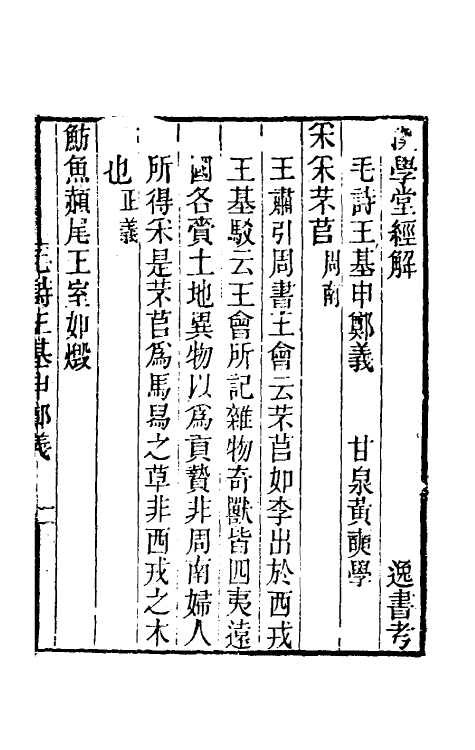 漢學堂經解　逸書考
毛詩王基申鄭義　甘泉黃奭學
采采芣苢周南
王肅引周書王會云芣苢如李出於西戎
王基駁云王會所記雜物奇獸皆四夷遠
國各賫土地異物以爲貢贄非周南婦人
所得采是芣苢爲馬舄之草非西戎之木
也正義
魴魚赬尾王室如燬
毛詩王基申鄭義　一